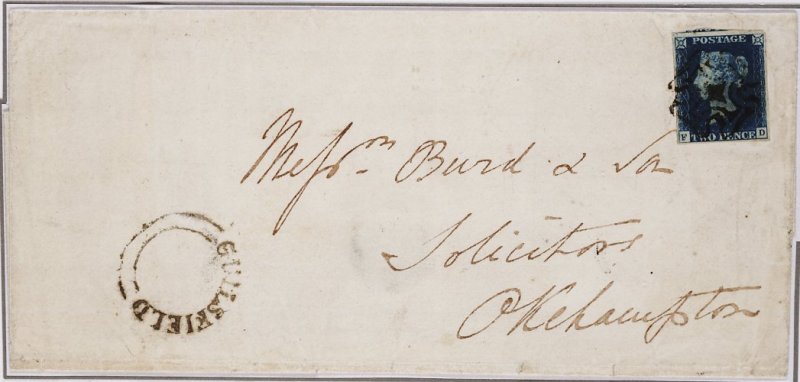 POSTAGE
F TWO PENCE D
Messrs. Burd & Son
Solicitors
Okehampton
GUILSFIELD